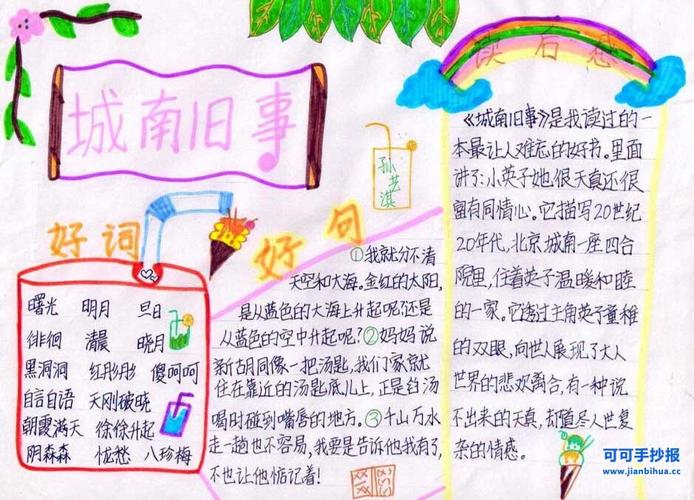 城南旧事
读后感
孙艺淇
好词
好句
曙光 明月 旦日
徘徊 清晨 晓月
黑洞洞 红彤彤 傻呵呵
自言自语 天刚破晓
朝霞满天 徐徐升起
阴森森 忧愁 八珍梅
①我就分不清
天空和大海。金红的太阳,
是从蓝色的大海上升起呢?还是
从蓝色的空中升起呢?②妈妈说
新胡同像一把汤匙,我们家就
住在靠近的汤匙底儿上,正是舀汤
喝时碰到嘴唇的地方。③千山万水
走一趟也不容易,我要是告诉他我有了,
不也让他惦记着!
《城南旧事》是我读过的一
本最让人难忘的好书。里面
讲了:小英子她很天真还很
富有同情心。它描写20世纪
20年代,北京城南一座四合
院里,住着英子温暖和睦
的一家。它透过主角英子童稚
的双眼,向世人展现了大人
世界的悲欢离合,有一种说
不出来的天真,却道尽人世复
杂的情感。
可可手抄报
www.jianbihua.cc